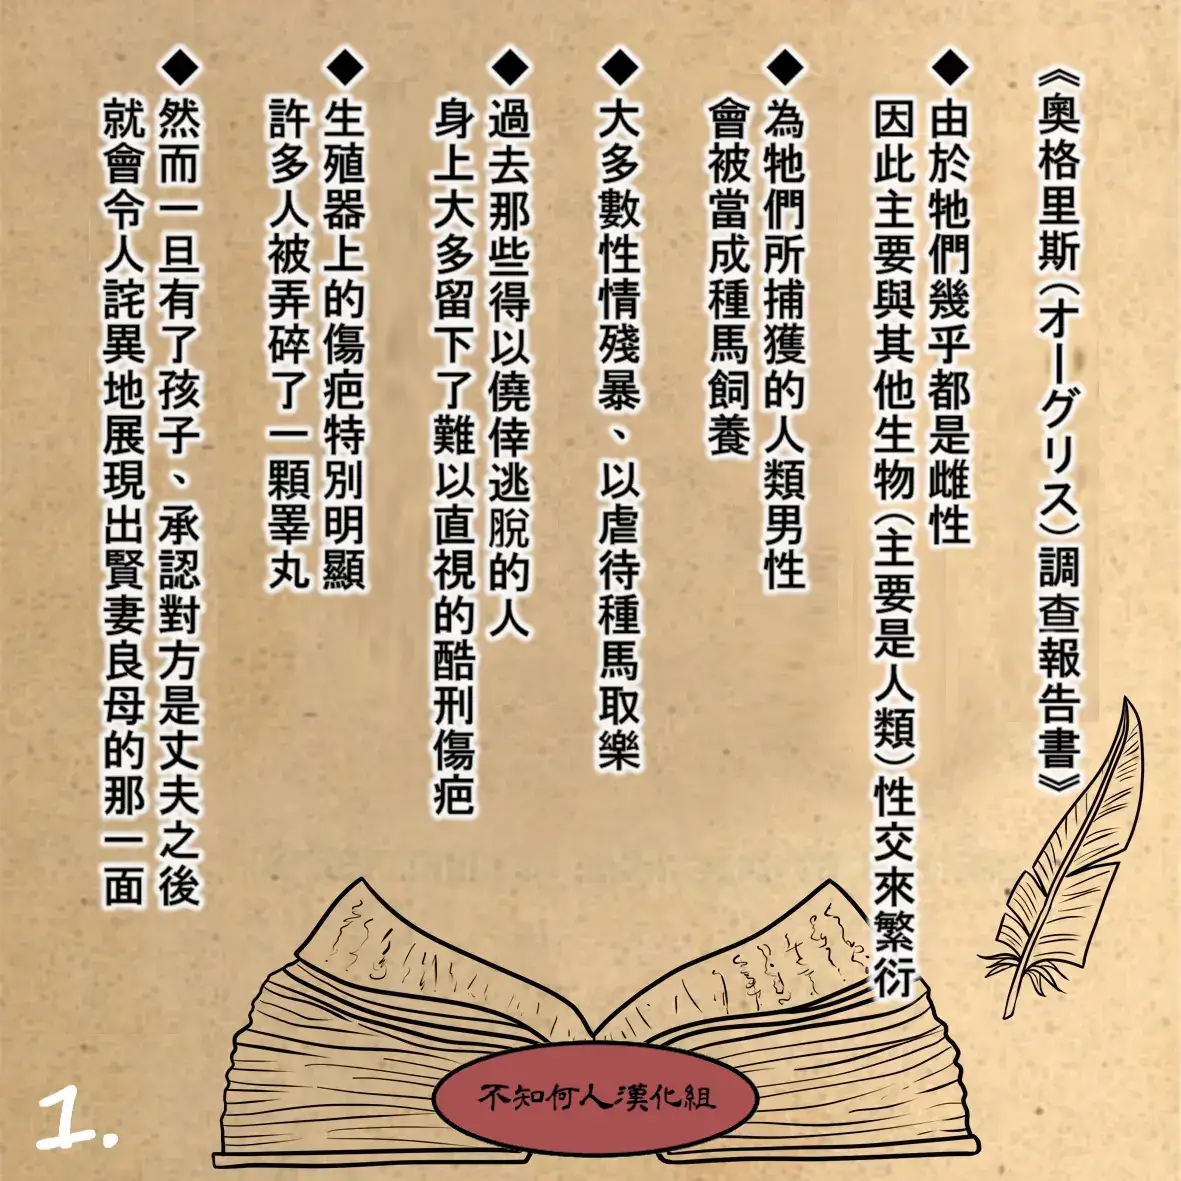 《奧格里斯(オーグリス)調查報告書》
◆由於牠們幾乎都是雌性
因此主要與其他生物(主要是人類)性交來繁衍
◆為牠們所捕獲的人類男性
會被當成種馬飼養
◆大多數性情殘暴、以虐待種馬取樂
◆過去那些得以僥倖逃脫的人
身上大多留下了難以直視的酷刑傷疤
◆生殖器上的傷疤特別明顯
許多人被弄碎了一顆睪丸
◆然而一旦有了孩子、承認對方是丈夫之後
就會令人詫異地展現出賢妻良母的那一面
不知何人漢化組
1.